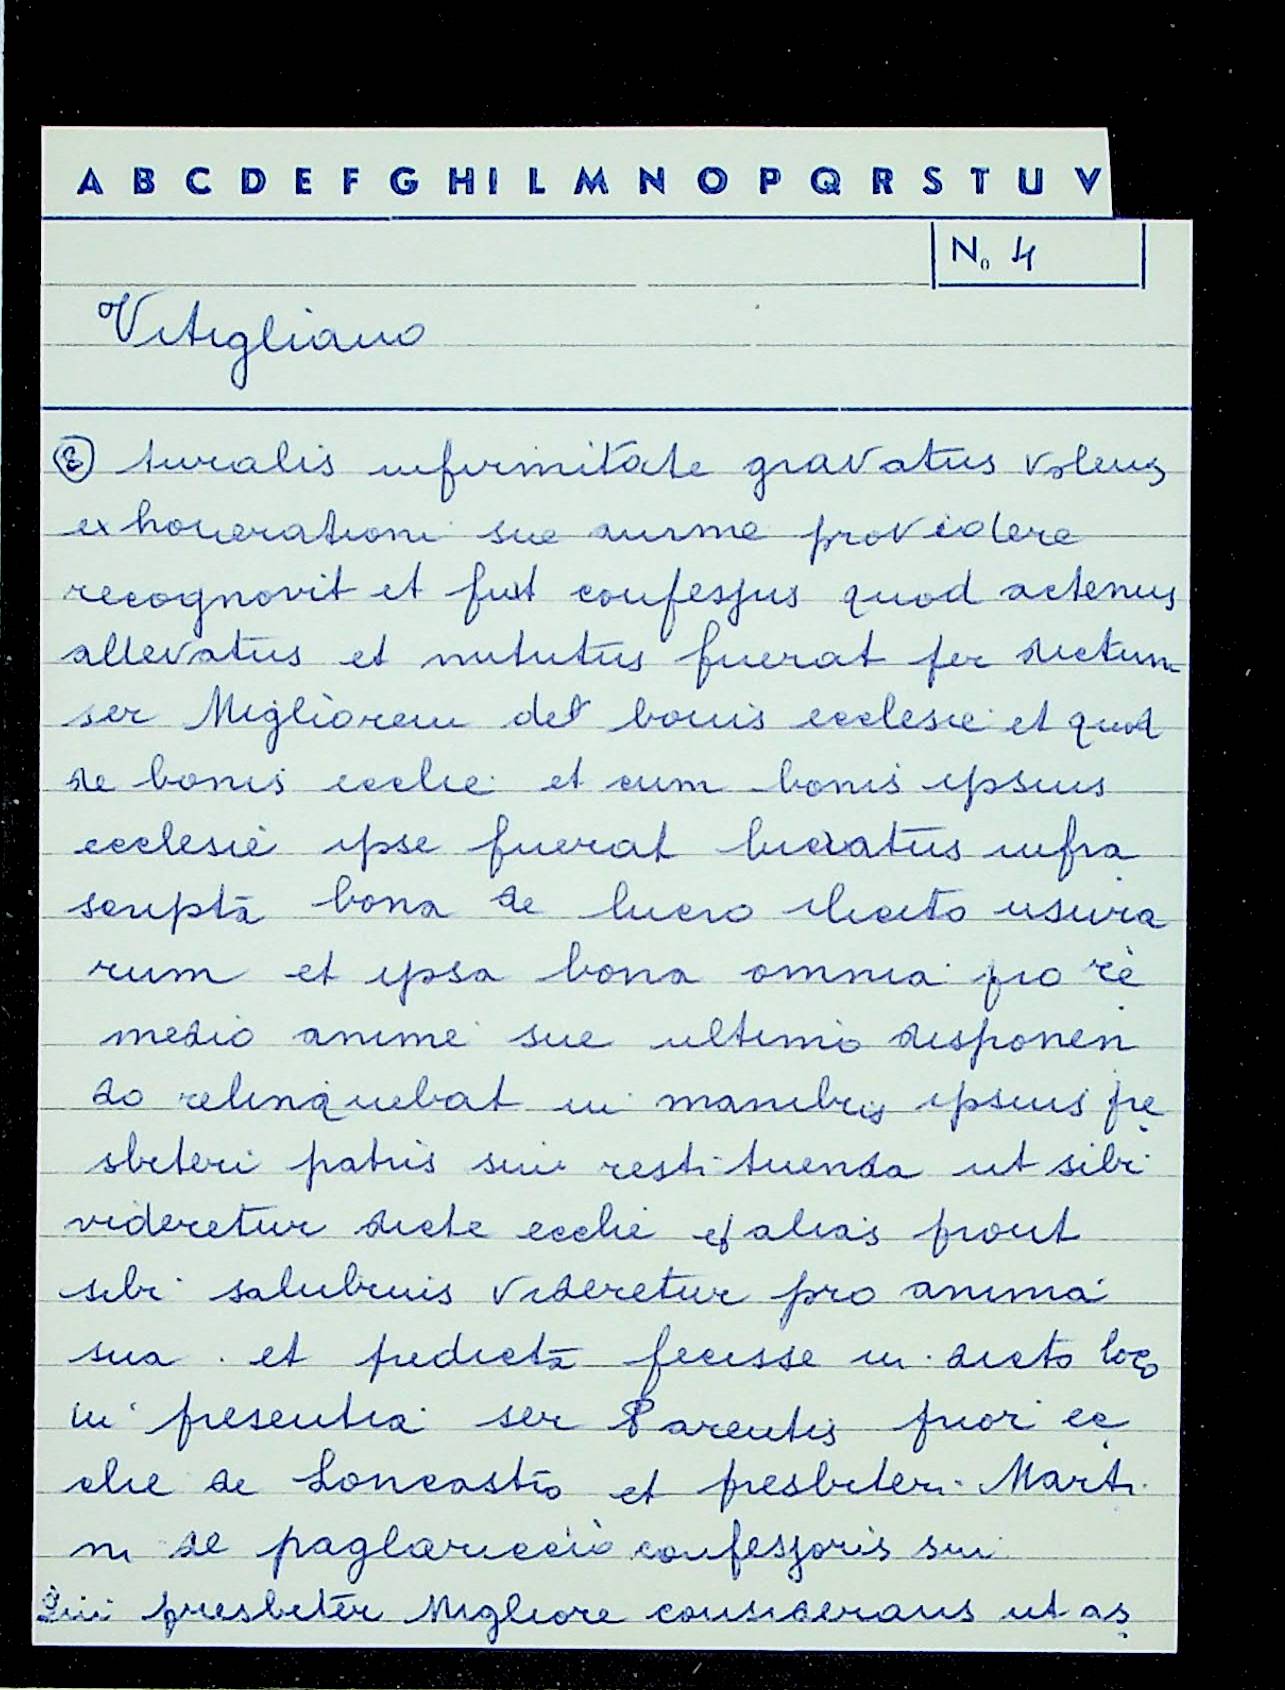 A B C D E F G H I L M N O P Q R S T U V
No 4
Vitigliano
② turalis infirmitate gravatus volens
exhonerationi sue anime providere
recognovit et fuit confessus quod actenus
allevatus et nutritus fuerat per dictum
ser Megliorem de bonis ecclesie et quod
de bonis ecclie et cum bonis ipsius
ecclesie ipse fuerat lucratus infra
scripta bona de lucro illicito usura
rum et ipsa bona omnia pro re
medio anime sue ultimo disponen
do relinquebat in manibus ipsius pre
sbiteri patris sui restituenda ut sibi
videretur dicte ecclie et alias prout
sibi salubrius videretur pro anima
sua . et predicta fecisse in dicto loco
in presentia ser Parentis prior ec
clie de Loncastro et presbiteri Marti
ni de paglariccio confessoris sui
Qui presbiter Megliore considerans ut as